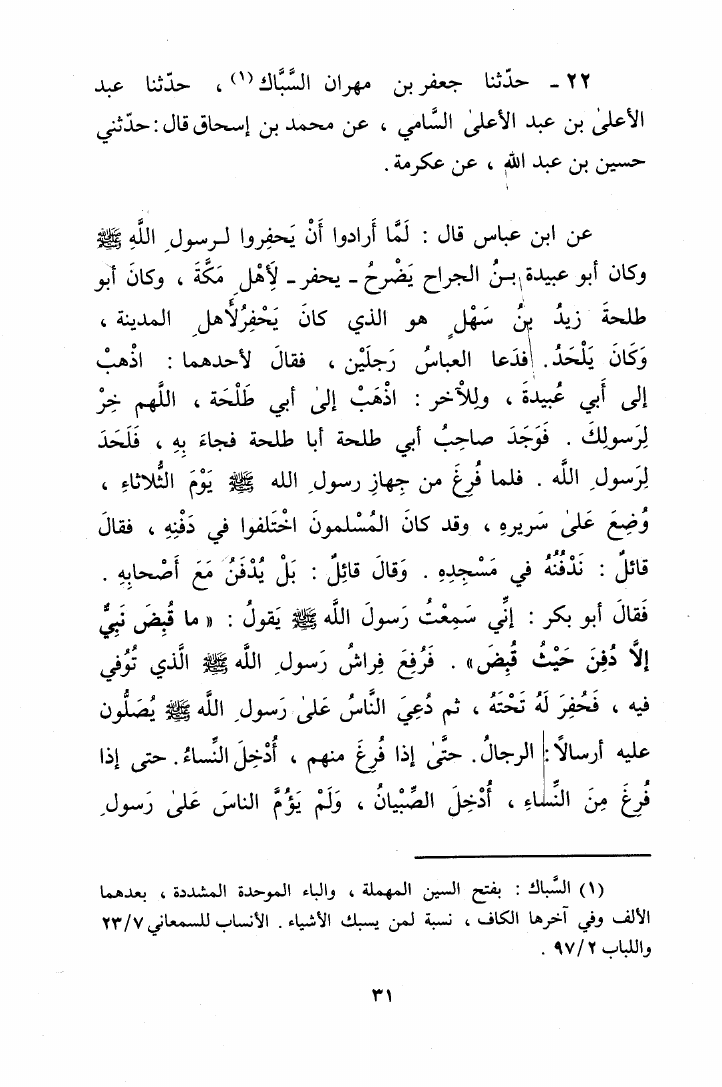 ٢٢ ـ حدّثنا جعفر بن مهران السَّبَّاك(١) ، حدّثنا عبد
الأعلىٰ بن عبد الأعلىٰ السَّامي ، عن محمد بن إسحاق قال : حدّثني
حسين بن عبد الله ، عن عكرمة .
عن ابن عباس قال : لَمَّا أَرادوا أَنْ يَحفِروا لـرسولِ اللَّهِ ﷺ
وكان أبو عبيدة بـنُ الجراح يَضْرحُ ـ يحفر ـ لِأَهْلِ مَكَّةَ ، وكانَ أبو
طلحةَ زيدُ بنُ سَهْلٍ هو الذي كانَ يَحْفِرُ لأهلِ المدينة ،
وَكَانَ يَلْحَدُ . فدَعا العباسُ رَجلَيْن ، فقالَ لأحدهما : اذْهبْ
إلى أَبي عُبيدةَ ، وللِْأخر : اذْهَبْ إلىٰ أبي طَلْحَة ، اللَّهم خِرْ
لِرَسولِكَ . فَوَجَدَ صاحِبُ أبي طلحة أبا طلحة فجاءَ بِهِ ، فَلَحَدَ
لِرَسولِ اللَّه . فلما فُرِغَ من جِهازِ رسولِ الله ﷺ يَوْمَ الثُّلاثاءِ ،
وُضِعَ عَلىٰ سَريرِهِ ، وقد كانَ المُسْلمونَ اخْتَلفوا في دَفْنِهِ ، فقالَ
قائلٌ : نَدْفُنُهُ في مَسْجدِهِ . وَقالَ قائِلٌ : بَلْ يُدْفَنُ مَعَ أَصْحابِهِ .
فَقالَ أبو بكر : إنِّي سَمِعْتُ رَسولَ اللَّه ﷺ يَقولُ : « ما قُبِضَ نَبِيٌّ
إلاَّ دُفِنَ حَيْثُ قُبِضَ » . فَرُفِعَ فِراشُ رَسولِ اللَّه ﷺ الَّذي تُوُفي
فيه ، فَحُفِرَ لَهُ تَحْتَهُ ، ثم دُعِيَ النَّاسُ عَلىٰ رَسولِ اللَّه ﷺ يُصَلُّون
عليه أرسالاً : الرجالُ . حتَّىٰ إذا فُرِغَ منهم ، أُدْخِلَ النِّساءُ . حتى إذا
فُرِغَ مِنَ النِّساءِ ، أُدْخِلَ الصِّبْيانُ ، وَلَمْ يَؤُمَّ الناسَ عَلىٰ رَسولِ
(١) السَّباك : بفتح السين المهملة ، والباء الموحدة المشددة ، بعدهما
الألف وفي آخرها الكاف ، نسبة لمن يسبك الأشياء . الأنساب للسمعاني ٢٣/٧
واللباب ٩٧/٢ .
٣١